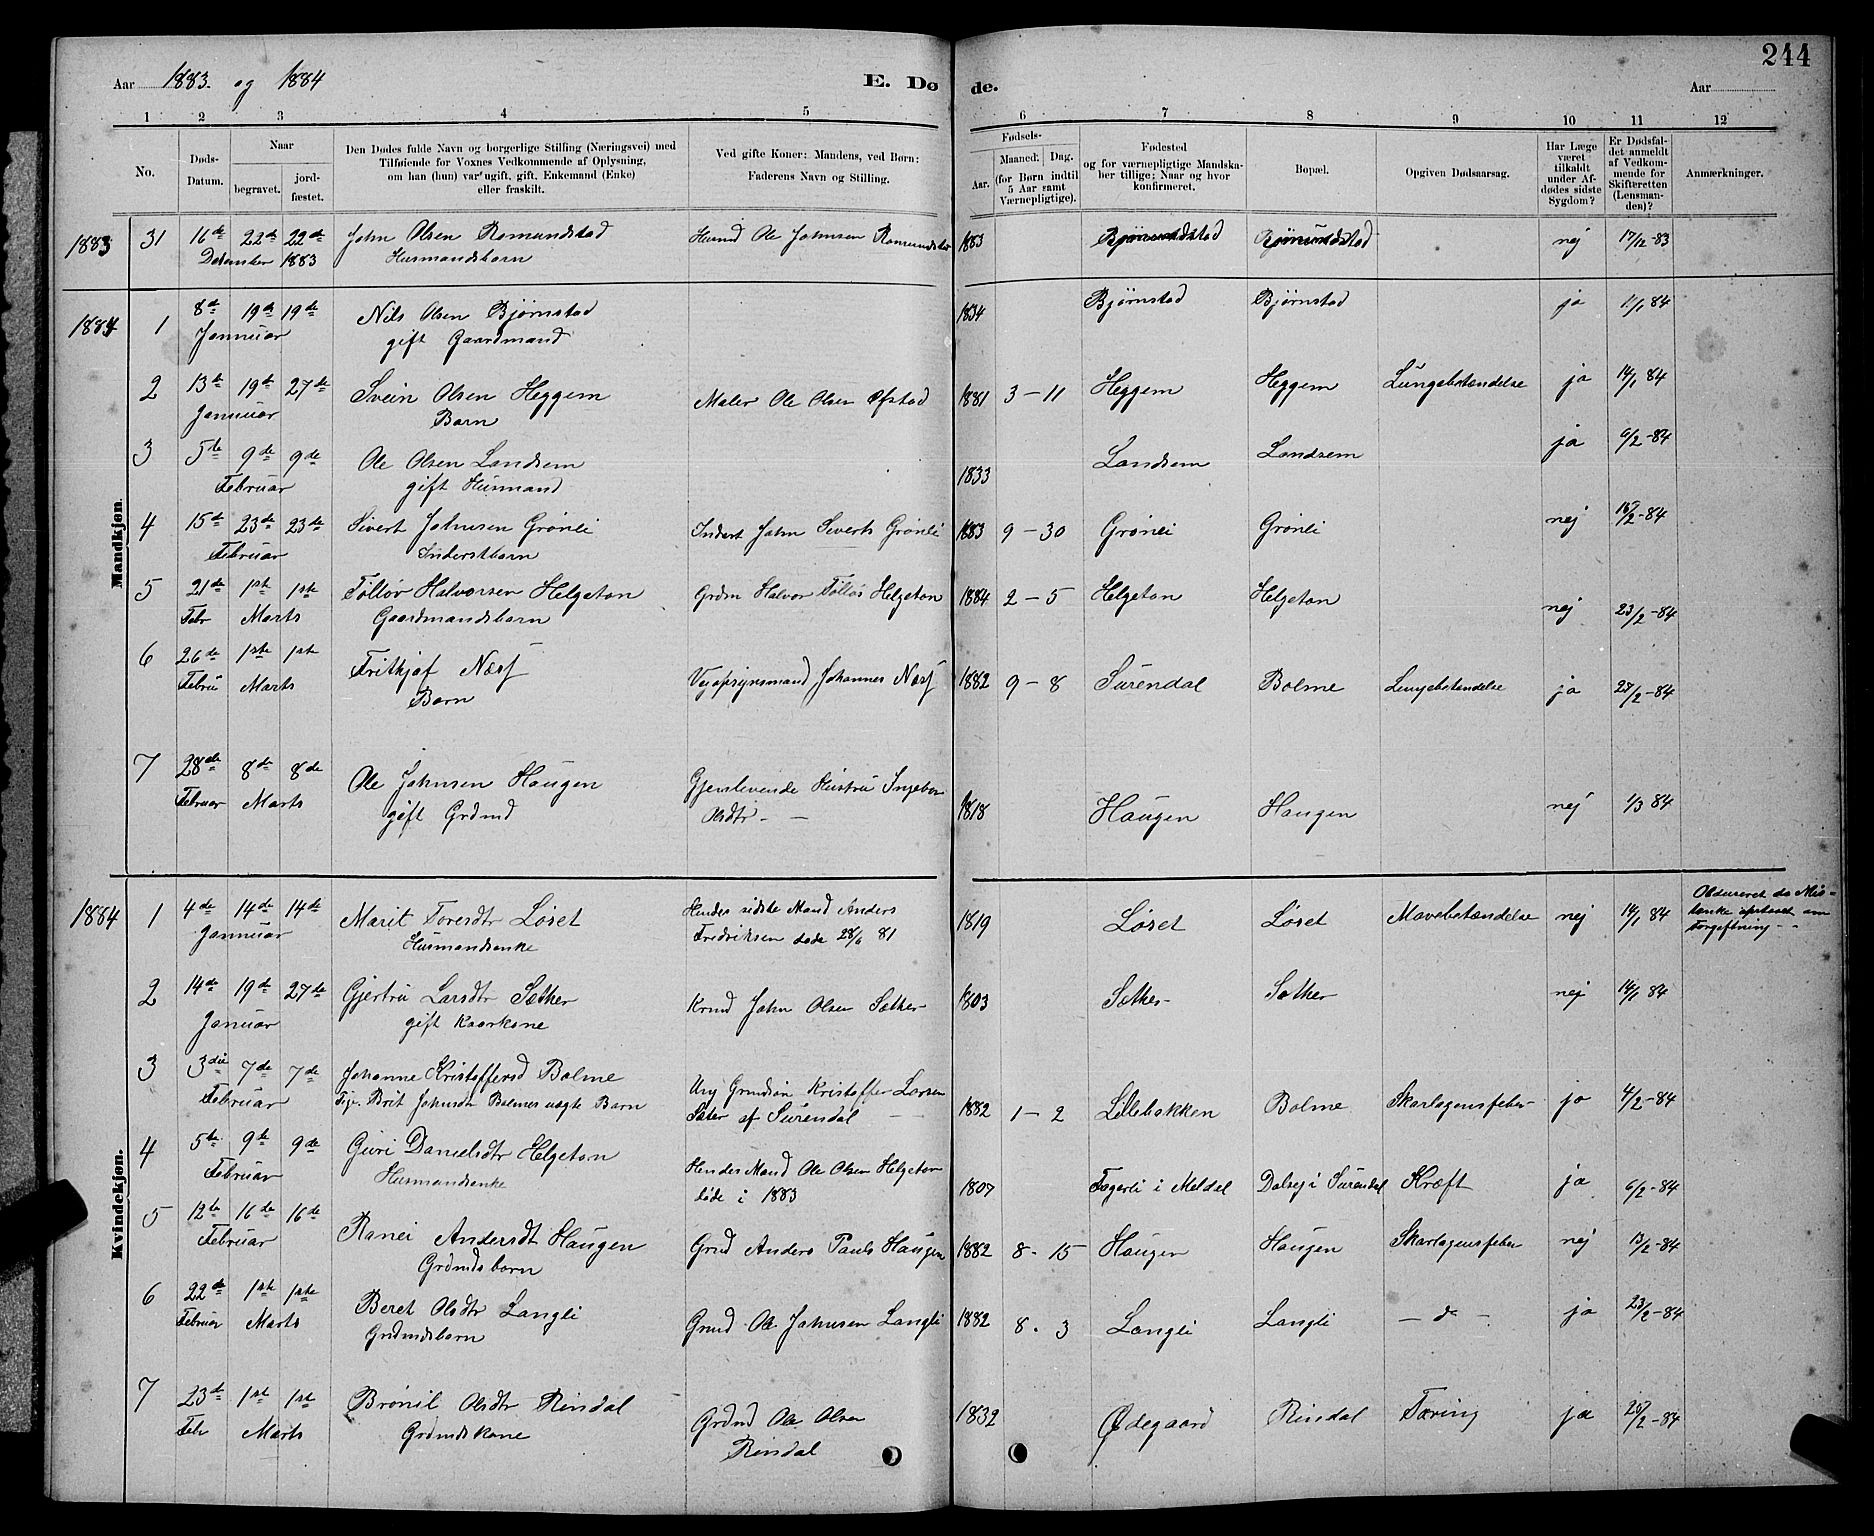 244
Aar 1883 og 1884 E. Dø de. Aar
1 2 3 4 5 6 7 8 9 10 11 12
No.
Døds-Datum.
Naar
begravet.
jord-fæstet.
Den Dødes fulde Navn og borgerlige Stilling (Næringsvei) med
Tilføiende for Voxnes Vedkommende af Oplysning,
om han (hun) var ugift, gift, Enkemand (Enke)
eller fraskilt.
Ved gifte Koner: Mandens, ved Børn:
Faderens Navn og Stilling.
Fødsels-
Aar.
Maaned. Dag.
(for Børn indtil
5 Aar samt
Værnepligtige).
Fødested
og for værnepligtige Mandska-
ber tillige; Naar og hvor
konfirmeret.
Bopæl.
Opgiven Dødsaarsag.
Har Læge
været
tilkaldt
under Af-
dødes sidste
Sygdom?
Er Dødsfal-
det anmeldt
af Vedkom-
mende for
Skifteretten
(Lensman-
den)?
Anmærkninger.
Mandkjøn.
1883 31 16de 22de 22de John Olsen Romundstad Husmd Ole Johnsen Romundstad 1883 nej 17/12-83
December 1883 Husmandsbarn
1884 1 8de 19de 19de Nils Olsen Bjørnstad 1834 Bjørnstad Bjørnstad ja 11/1 84
Januar gift Gaardmand
2 13de 19de 27de Svein Olsen Heggem Maler Ole Olsen Østad 1881 3-11 Heggem Heggem Lungebetændelse ja 14/1 84
Januar Barn
3 5te 9de 9de Ole Olsen Landsem 1833 Landsem Landsem ja 6/2-84
Februar gift Husmand
4 15de 23de 23de Sivert Johnsen Grønli Inderst John Siverts Grønli 1883 9-30 Grønli Grønli nej 16/2-84
Februar Inderstbarn
5 21de 1ste 1ste Tøllöv Halvorsen Helgeton Grdm Halvor Tøllös Helgeton 1884 2-5 Helgeton Helgeton nej 23/2-84
Febr Marts Gaardmandsbarn
6 26de 1ste 1ste Fritkjof Næss Vejopsynsmand Johannes Næss 1882 9-8 Surendal Bolme Lungebetændelse ja 28/2-84
Februar Marts Barn
7 28de 8de 8de Ole Johnsen Haugen Gjenlevende Hustru Ingebor 1818 Haugen Haugen nej 1/3 84
Februar Marts gift Grdmd Olsdtr
Kvindekjøn.
1884 1 4de 14de 14de Marit Toresdtr Løset Hendes sidste Mand Anders Fredriksen døde 28/6 81 1819 Løset Løset Mavebetændelse nej 14/1 84 Obduceret da Mistanke opstaaet om Forgiftning
Januar Husmandsenke
2 14de 19de 27de Gjertru Larsdtr Sæther John Olsen Sæther 1803 Sæther Sæther nej 14/1 84
Januar gift Kaarkone
3 3die 7de 7de Johanne Kristoffersd Bolme Ung Grmdsøn Kristoffer Larsen 1882 1-2 Lillebakken Bolme Skarlagensfeber ja 4/2-84
Februar Pige Brit Johnsdtr Bolmes uægte Barn Sæter af Surendal
4 5te 9de 9de Guri Danielsdtr Helgeton Hendes Mand Ole Olsen Helgeton 1807 Fagerli i Meldal Dalsej i Surendal Kræft ja 6/2-84
Februar Husmandsenke døde i 1883
5 12te 16de 16de Ranei Andersdt Haugen Grmd Anders Pauls Haugen 1882 8-15 Haugen Haugen Skarlagensfeber nej 13/2-84
Februar Grdmdsbarn
6 22de 1ste 1ste Beret Olsdtr Langli Grmd Ole Johnsen Langli 1882 8-3 Langli Langli - do - ja 23/2-84
Februar Marts Grdmdsbarn
7 23de 1ste 1ste Brønil Olsdtr Rindal Grdmd Ole Olsen 1832 Ødegaard Rindal Tæring ja 26/2-84
Febr Marts Grdmdskone Rindal